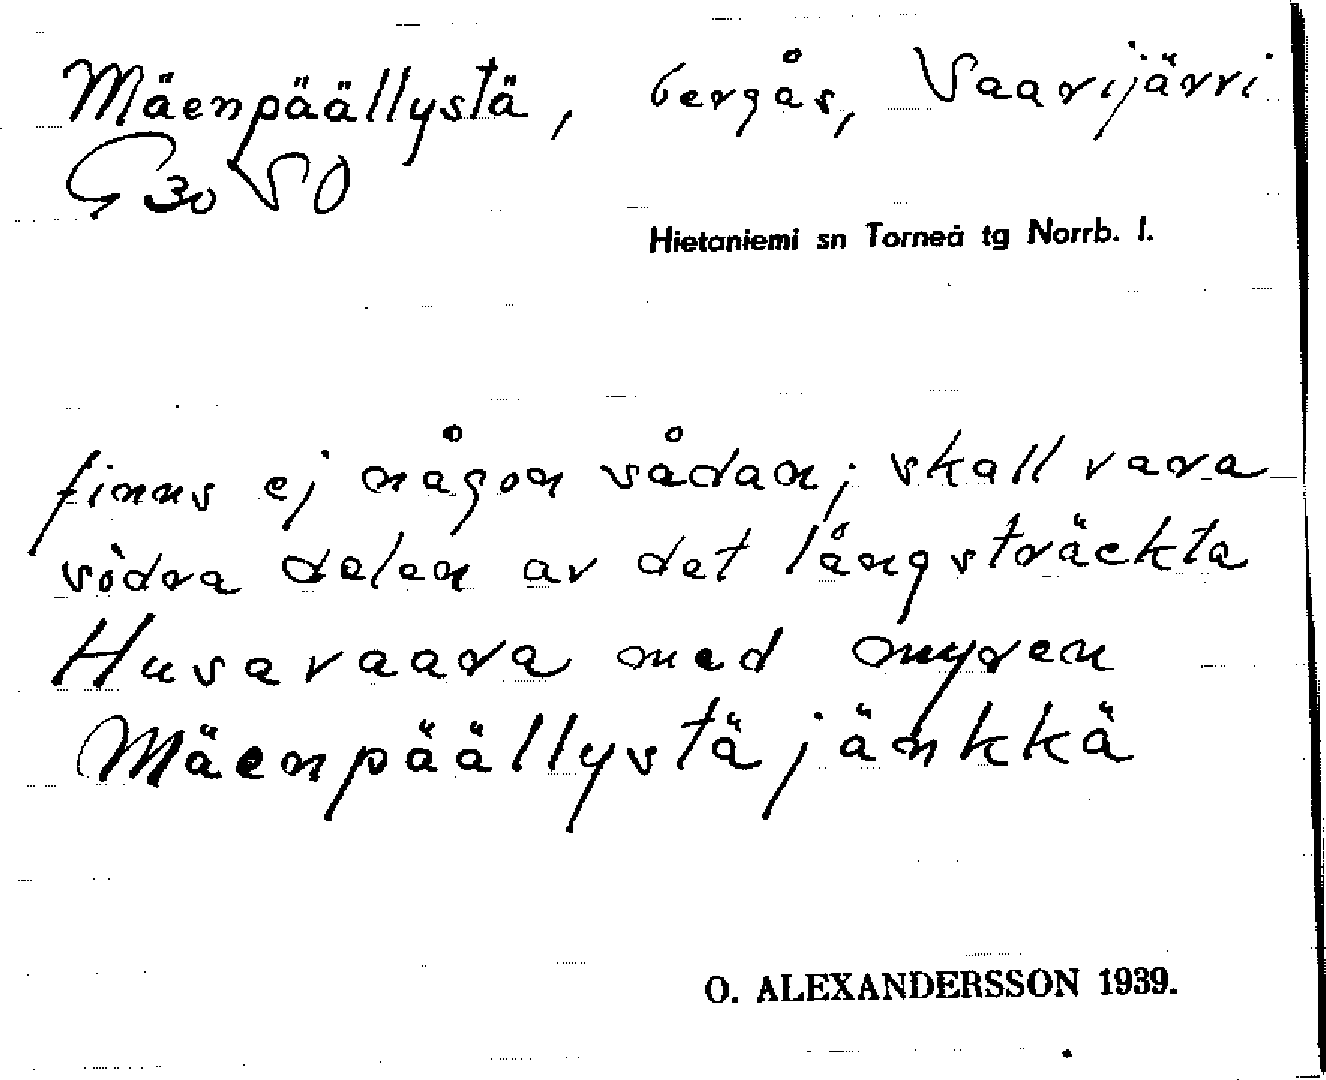 Mäenpäällystä, bergås, Vaarijärvi
G 30 SO
Hietaniemi sn Torneå tg Norrb. l.
finns ej någon sådan; skall vara
södra delen av det långsträckta
Husavaara med myren
Mäenpäällystäjänkkä
O. ALEXANDERSSON 1939.